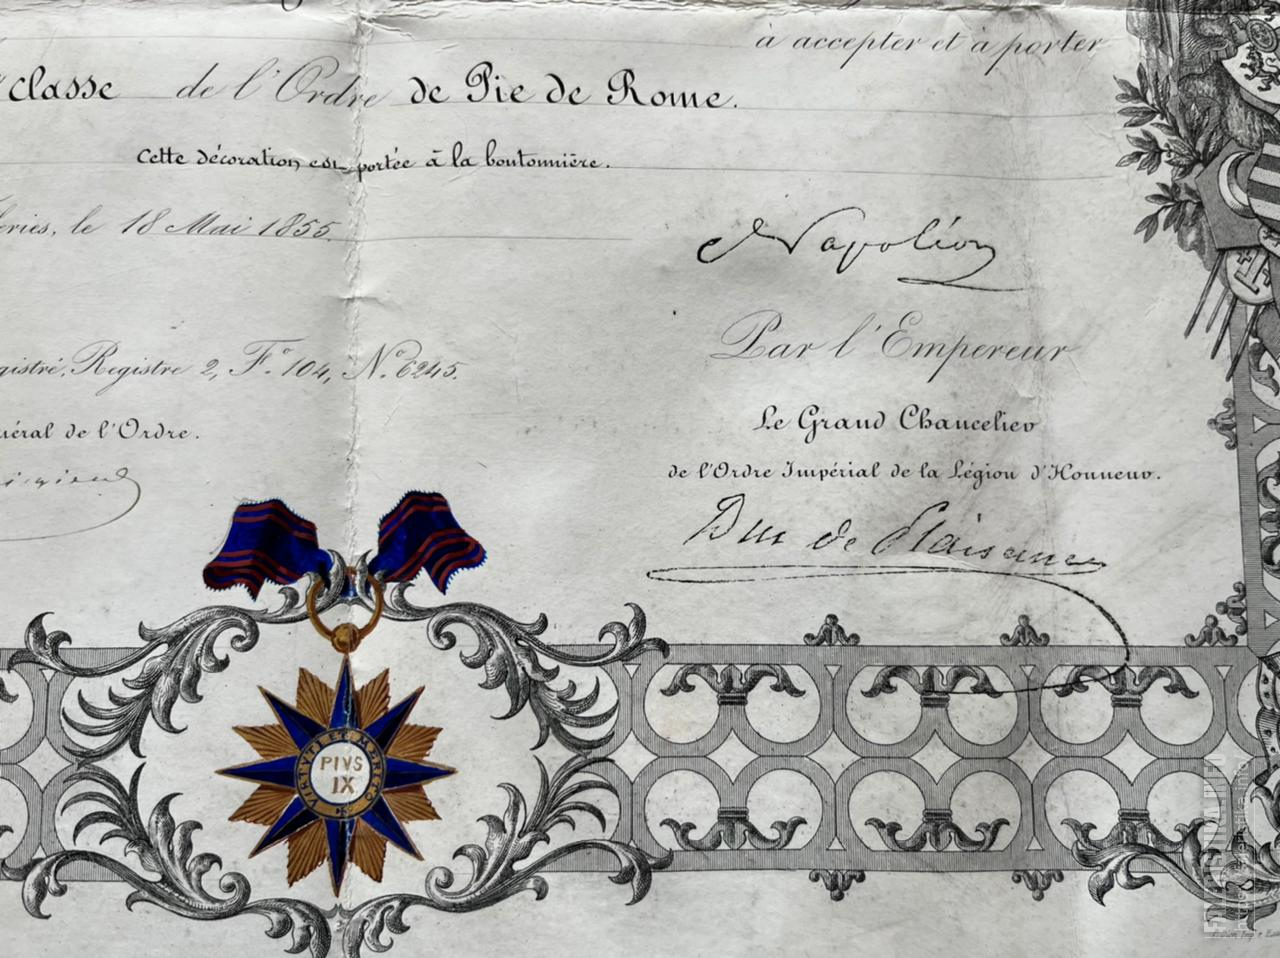 à accepter et à porter
classe de l'Ordre de Pie de Rome.
Cette décoration est portée à la boutonnière.
eries, le 18 Mai 1855.
Napoléon
Par l'Empereur
gistré, Registre 2, F.º 104, N.º 6245.
Le Grand Chancelier
néral de l'Ordre.
de l'Ordre Impérial de la Légion d'Honneur.
Duc de Plaisance
VIRTVTI ET MERITO
PIVS
IX